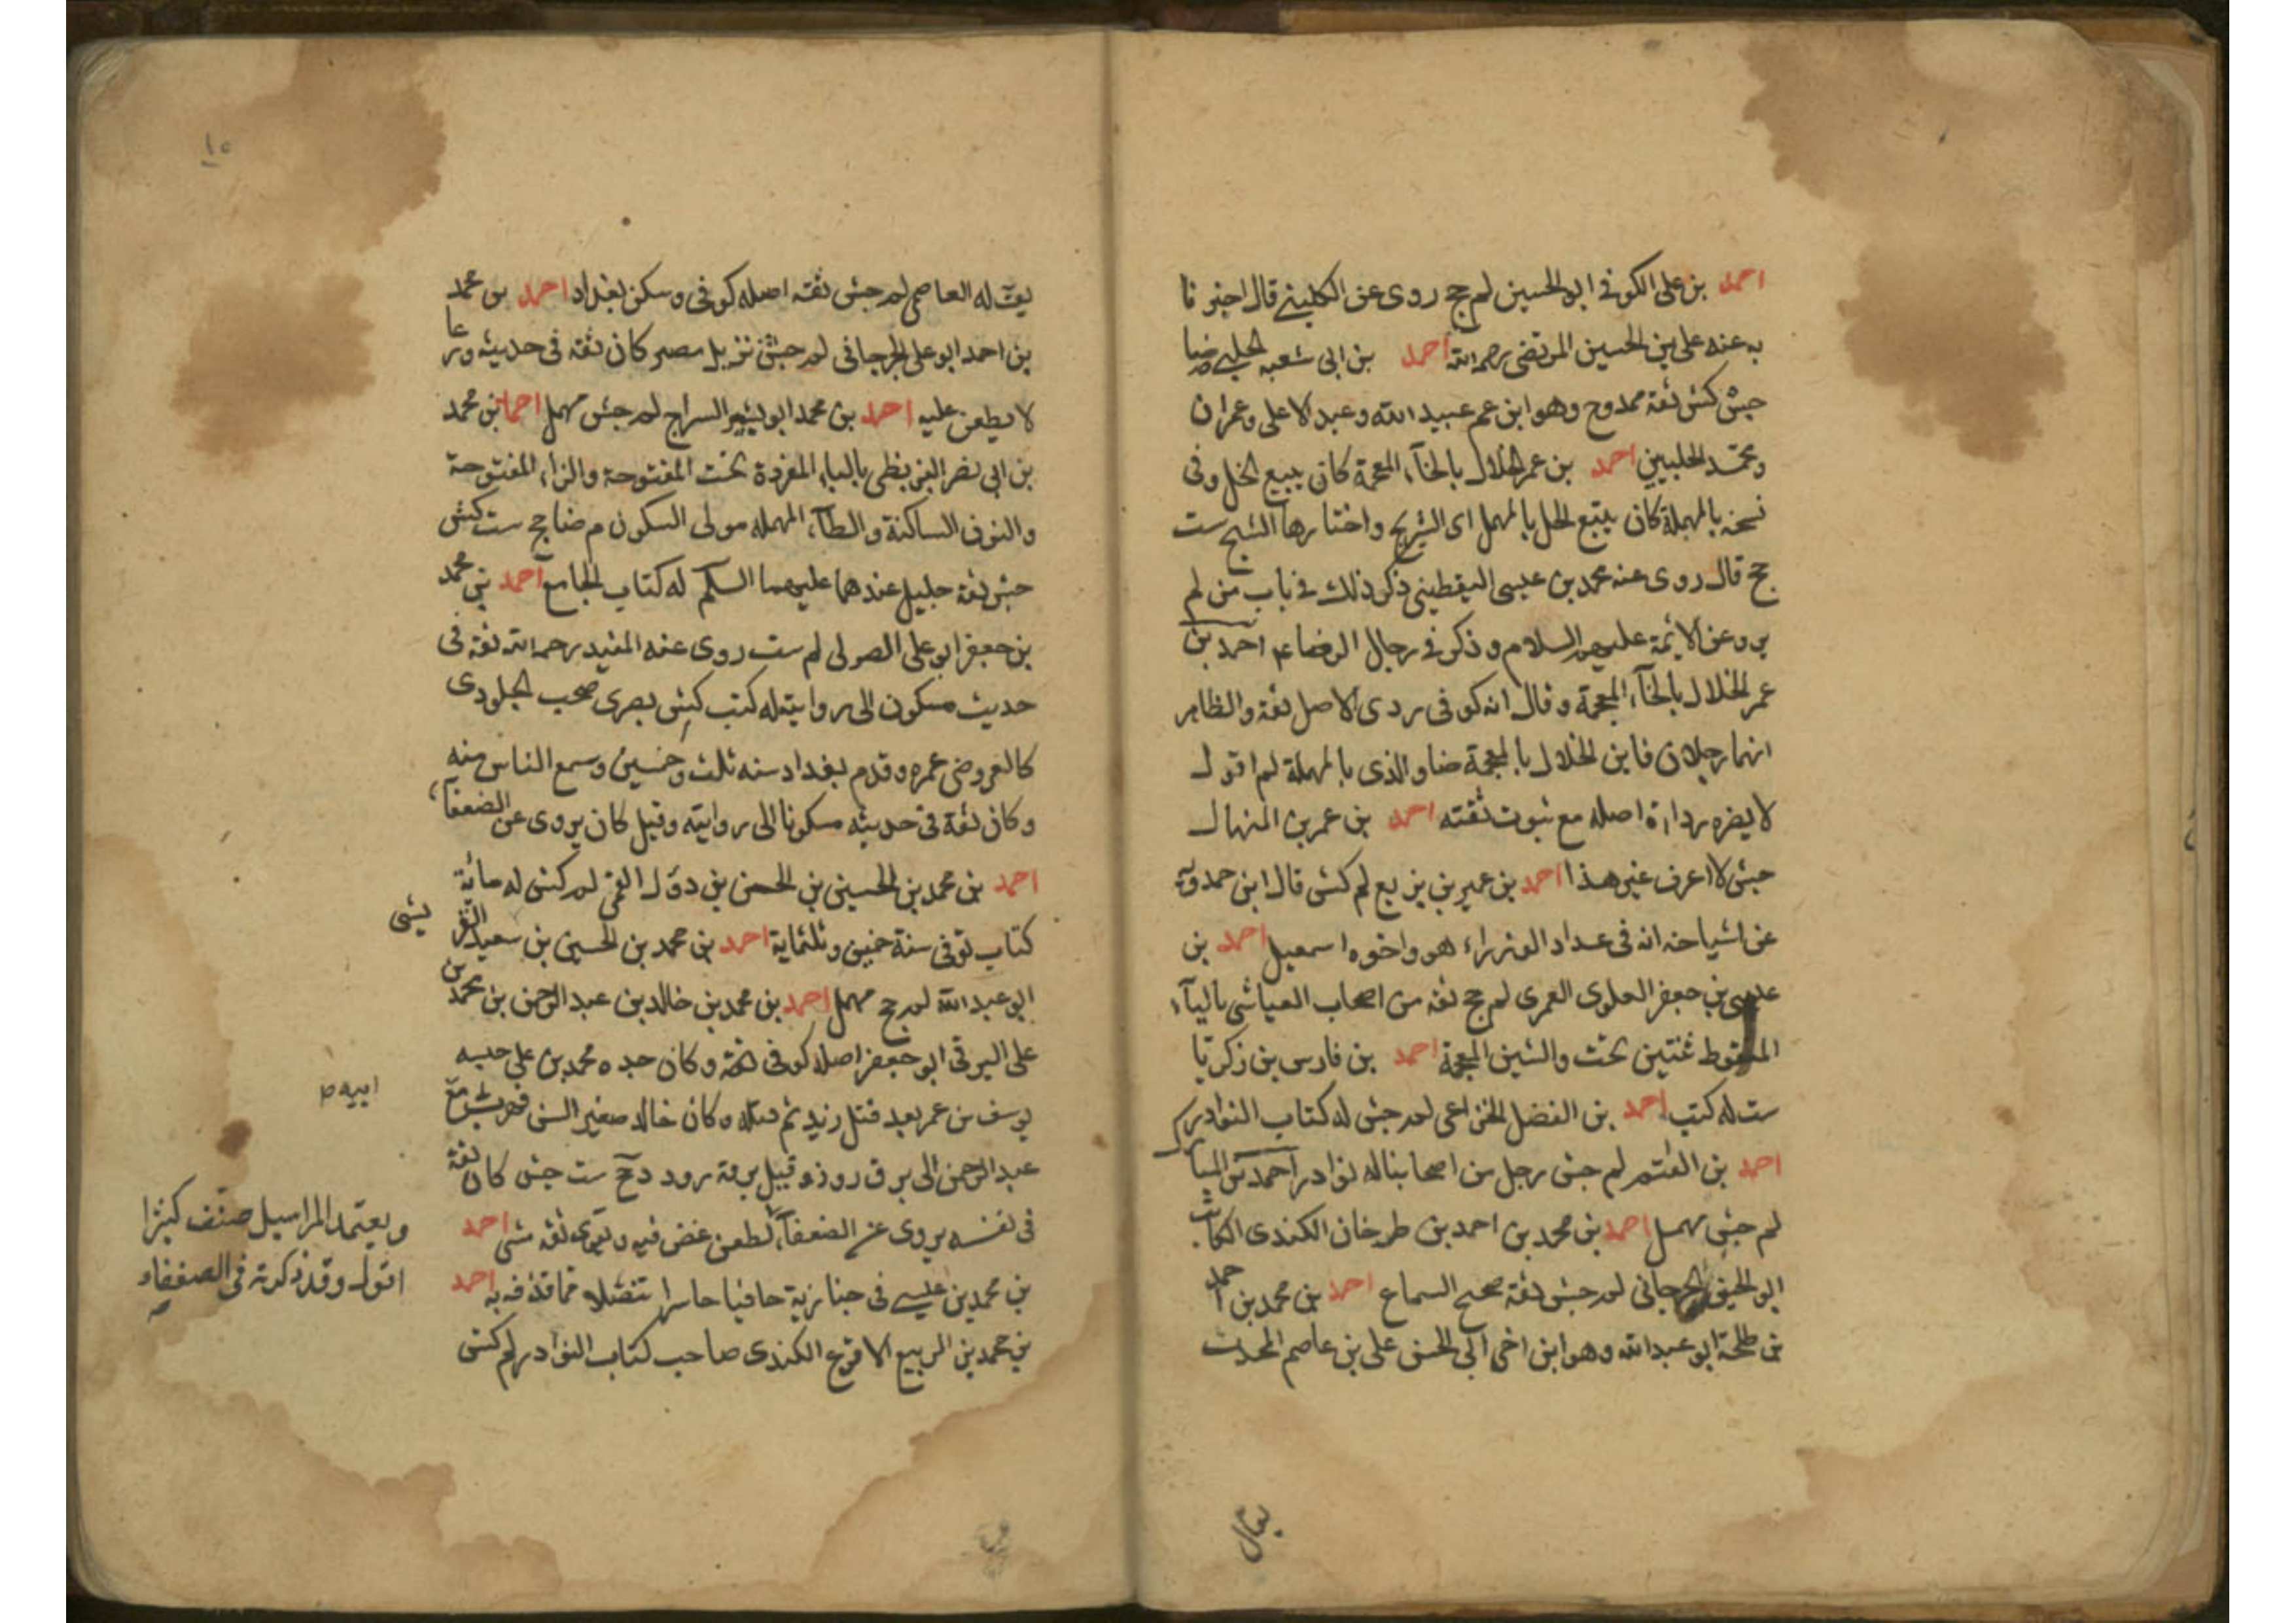 احمد بن على الكوفى ابو الحسين لم جخ روى عن الكلينى قال اخبرنا
به عنه على بن الحسين المرتضى رحمه الله احمد بن ابى شعبه الحلبى ضا
جش كش ثقة ممدوح وهو ابن عم عبيد الله وعبد الاعلى وعمران
ومحمد الحلبيين احمد بن عمر الخلال بالخآء المعجمة كان يبيع الخل وفى
نسخه بالمهملة كان يبيع الحل بالمهمل اى الشيرج واختارها الشيخ ست
جخ قال روى عنه محمد بن عيسى اليقطينى ذكر ذلك فى باب من لم
يرو عن الائمة عليهم السلام وذكر فى رجال الرضا ع احمد بن
عمر الخلال بالخآء المعجمة وقال انه كوفى ردى الاصل ثقة والظاهر
انهما رجلان فابن الخلال بالمعجمة ضا والذى بالمهملة لم اقول
لا يضره رداءة اصله مع ثبوت ثقته احمد بن عمر بن المنهال
جش لا اعرف غير هذا احمد بن عمير بن بزيع لم كش قال ابن حمدويه
عن اشياخه انه فى عداد الوزراء هو واخوه اسمعيل احمد بن
عيسى بن جعفر العلوى العمرى لم جخ ثقه من اصحاب العياشى باليآء
المنقوط ثنتين تحت والشين المعجمة احمد بن فارس بن زكريا
ست له كتب احمد بن الفضل الخزاعى لم جش له كتاب النوادر
احمد بن القثم لم جش رجل من اصحابنا له نوادر احمد بن المبا
لم جش مهمل احمد بن محمد بن احمد بن طرخان الكندى الكاتب
ابو الحسين الجرجانى لم جش ثقة صحيح السماع احمد بن محمد بن احمد
بن طلحة ابو عبد الله وهو ابن اخى ابى الحسن على بن عاصم المحدث
يقال
١٥
يقال له العاصمى لم جش ثقه اصله كوفى وسكن بغداد احمد بن محمد
بن احمد ابو على الجرجانى لم جش نزيل مصر كان ثقه فى حديثه ورعا
لا يطعن عليه احمد بن محمد ابو بشر السراج لم جش مهمل احمد بن محمد
بن ابى نصر البزنطى بالباء المفردة تحت المفتوحة والزاء المفتوحة
والنون الساكنة والطآء المهمله مولى السكون م ضا جخ ست كش
جش ثقة جليل عندهما عليهما السلم له كتاب الجامع احمد بن محمد
بن جعفر ابو على الصولى لم ست روى عنه المفيد رحمه الله ثقة فى
حديث مسكون الى روايته له كتب كش بصرى صحب الجلودى
كالعروضى عمره وقدم بغداد سنه ثلث وخمسين وسمع الناس منه
وكان ثقة فى حديثه مسكونا الى روايته وقيل كان يروى عن الضعفاء
احمد بن محمد بن الحسين بن الحسن بن دؤل القمى لم كش له مائة
كتاب توفى سنة خمسين وثلثماية احمد بن محمد بن الحسين بن سعيد القر
يشى
ابو عبد الله لم جخ مهمل احمد بن محمد بن خالد بن عبد الرحمن بن محمد بن
على البرقى ابو جعفر اصله كوفى ثقة وكان جده محمد بن على حبسه
يوسف بن عمر بعد قتل زيد ثم قتله وكان خالد صغير السن فهرب مع
ابيه
عبد الرحمن الى برق روذ وقيل برقه رود دى جخ ست جش كان ثقة
فى نفسه يروى عن الضعفآء
ويعتمد المراسيل صنف كثيرا
اقول وقد ذكرته فى الضعفاء
لطعن غض فيه ويقوى ثقه مشى احمد
بن محمد بن عيسى فى جنازته حافيا حاسرا تنصلا مما قذفه به احمد
بن محمد بن الربيع الاقرع الكندى صاحب كتاب النوادر لم كش